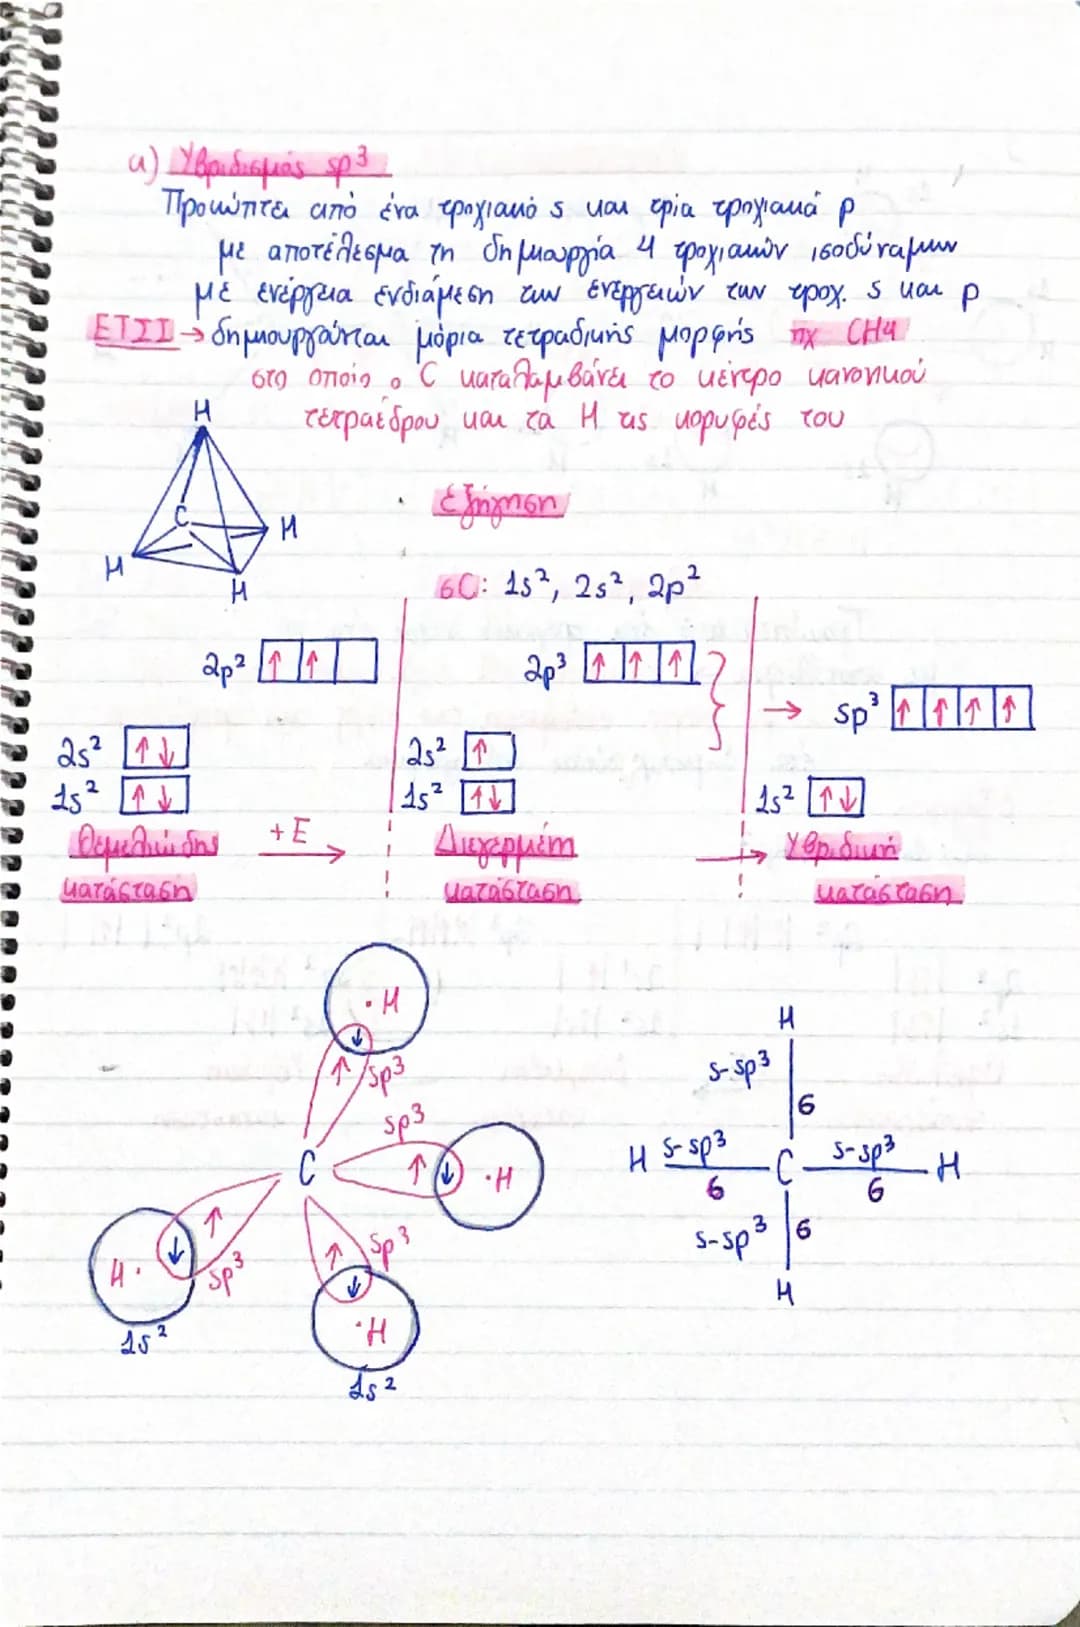 α) Υβριδισμός sp³
Προκύπτει από ένα τροχιακό s και τρία τροχιακά p
με αποτέλεσμα τη δημιουργία 4 τροχιακών ισοδύναμων
με ενέργεια ενδιάμεση των ενεργειών των τροχ. s και p
ΕΤΣΙ → δημιουργούνται μόρια τετραδικής μορφής πχ CH4
στο οποίο ο C καταλαμβάνει το κέντρο κανονικού
τετραέδρου και τα H τις κορυφές του
H
C
H
H
H
Εξήγηση
6C: 1s², 2s², 2p²
2p² ↑ ↑
2s² ↑↓
1s² ↑↓
Θεμελιώδης
κατάσταση
+E →
2p³ ↑ ↑ ↑
2s² ↑
1s² ↑↓
Διεγερμένη
κατάσταση
→ sp³ ↑ ↑ ↑ ↑
1s² ↑↓
→ Υβριδική
κατάσταση
·H
↓
↑ sp³
sp³
C ↑ ↓ ·H
↑ sp³
↓
H·
1s²
↑ sp³
↓
·H
1s²
H
s-sp³
σ
H s-sp³ C s-sp³ H
σ σ
s-sp³ σ
H